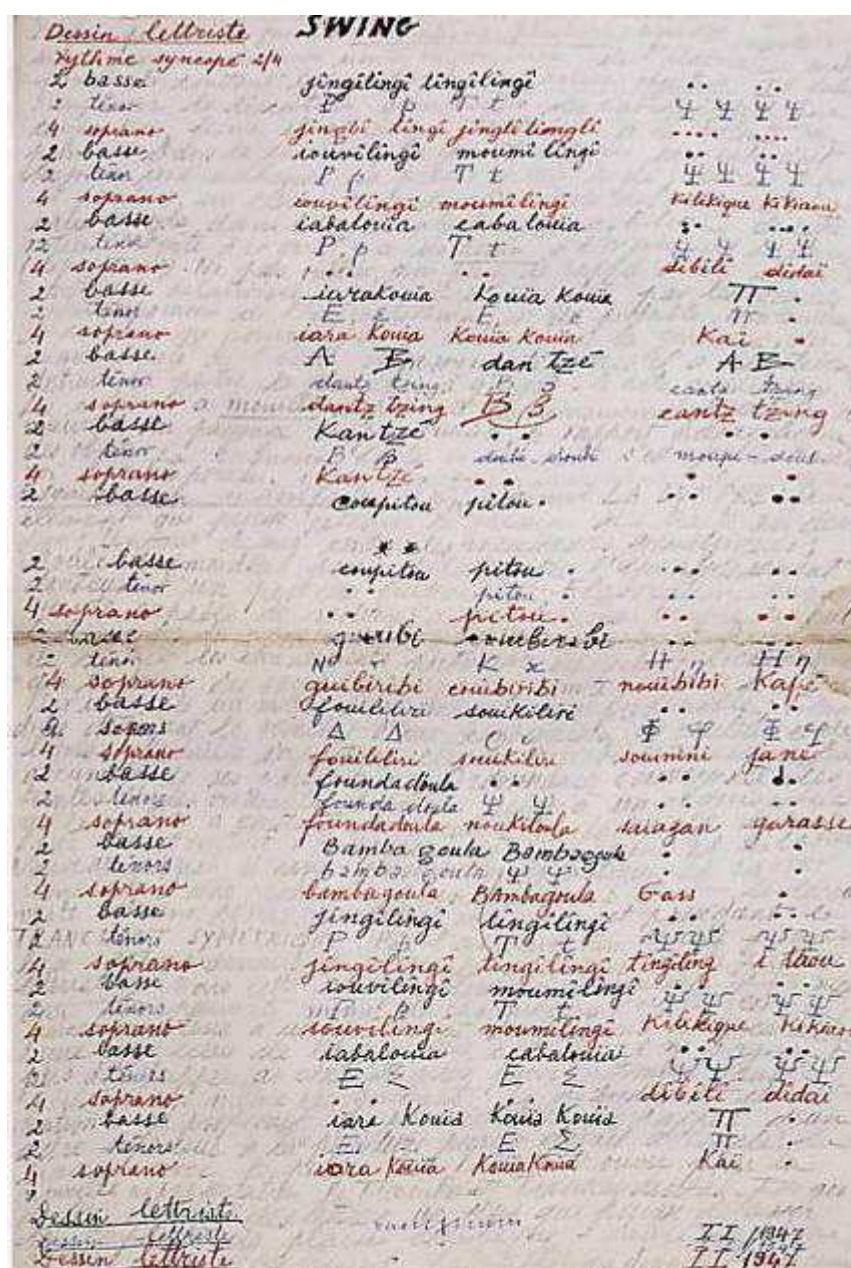 Dessin lettriste SWING
rythme syncopé 2/4
2 basse jingilingi lingilingi .. ..
2 tenor P p T t Ψ Ψ Ψ Ψ
4 soprano jingbi lingi jingli limgli .... ....
2 basse iouvilingi moumi lingi .. ..
2 tenor P p T t Ψ Ψ Ψ Ψ
4 soprano iouvilingi moumilingi Kilikique Kikiaou
2 basse iabalouia cabalouia
12 tenor P p T t Ψ Ψ Ψ Ψ
4 soprano .. .. dibili didai
2 basse iarakouia Kouia Kouia π .
2 tenor E ε E ε π .
4 soprano iara Kouia Kouia Kouia Kai .
2 basse A B dan tzé A B
2 tenor dantz tzing B cantz tzing
4 soprano dantz tzing B β cantz tzing
2 basse Kantzé .. . .
2 tenor B β
4 soprano Kantzé .. .. ..
2 basse coupitou pitou . .. ..
2 basse coupitou pitou . .. ..
2 tenor .. pitou . .. ..
4 soprano .. pitou . .. ..
2 basse .. ..
2 tenor N K x H η H η
4 soprano guibiribi couibiribi nouibibi Kapé
2 basse fouililiri soukiliri .. ..
Δ Δ Φ φ Φ φ
4 soprano fouililiri soukiliri soumini jani
2 basse foundadoula .. .. .
2 tenors founda doula Ψ Ψ .. ..
4 soprano foundadoula noukitoula garasse
2 basse Bamba goula Bambagoula . .
2 tenors bamba goula Ψ Ψ . .
4 soprano bambagoula BAmbagoula Gass .
2 basse jingilingi lingilingi .. ..
2 tenors P p T t Ψ Ψ Ψ Ψ
4 soprano jingilingi lingilingi tingiling i laou
2 basse iouvilingi moumilingi
2 tenors P p T t Ψ Ψ Ψ Ψ
4 soprano iouvilingi moumilingi Kilikique Kikiaou
2 basse iabalouia cabalouia .. ..
tenors E Σ E Σ Ψ Ψ Ψ Ψ
4 soprano dibili didai
2 basse iara Kouia Kouia Kouia π .
2 tenors E Σ E Σ π .
4 soprano iara Kouia Kouia Kouia Kai .
Dessin lettriste
Dessin lettriste II /1947
Dessin lettriste II 1947